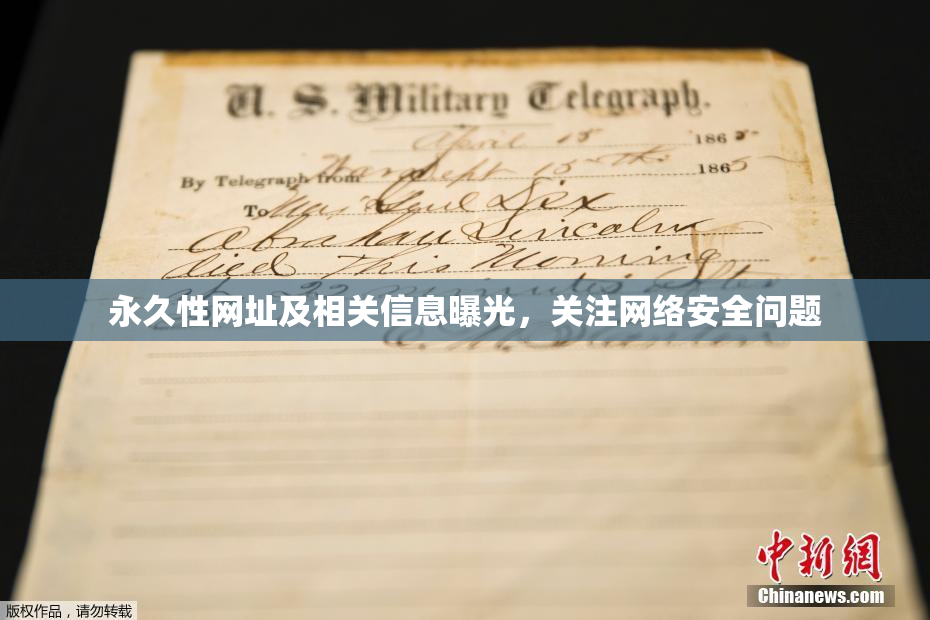 U. S. Military Telegraph.
April 15 1865
By Telegraph from War Dept 15th 1865
To Maj Genl Dix
Abraham Lincoln
died This Morning
at 22 minutes after
永久性网址及相关信息曝光，关注网络安全问题
E. M. Stanton
中新网
Chinanews.com
版权作品，请勿转载